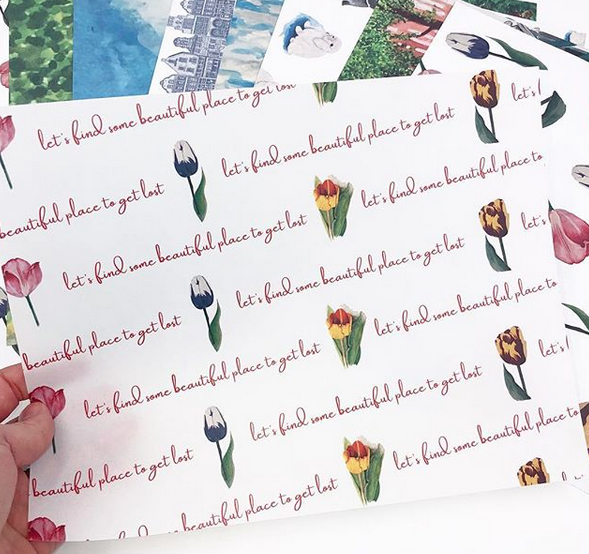 let's find some beautiful place to get lost
let's
let's find some beautiful place to get lost
beautiful place to get lost
let's find some beautiful place to
let's find some beautiful place to get lost
let's
let's find some beautiful place to get lost
beautiful place to get lost
let's find some beautiful place to
let's find some beautiful place to get lost
let's
let's find some beautiful place to get lost
beautiful place to get lost
let's find some beautiful place to
let's find some beautiful place to get lost